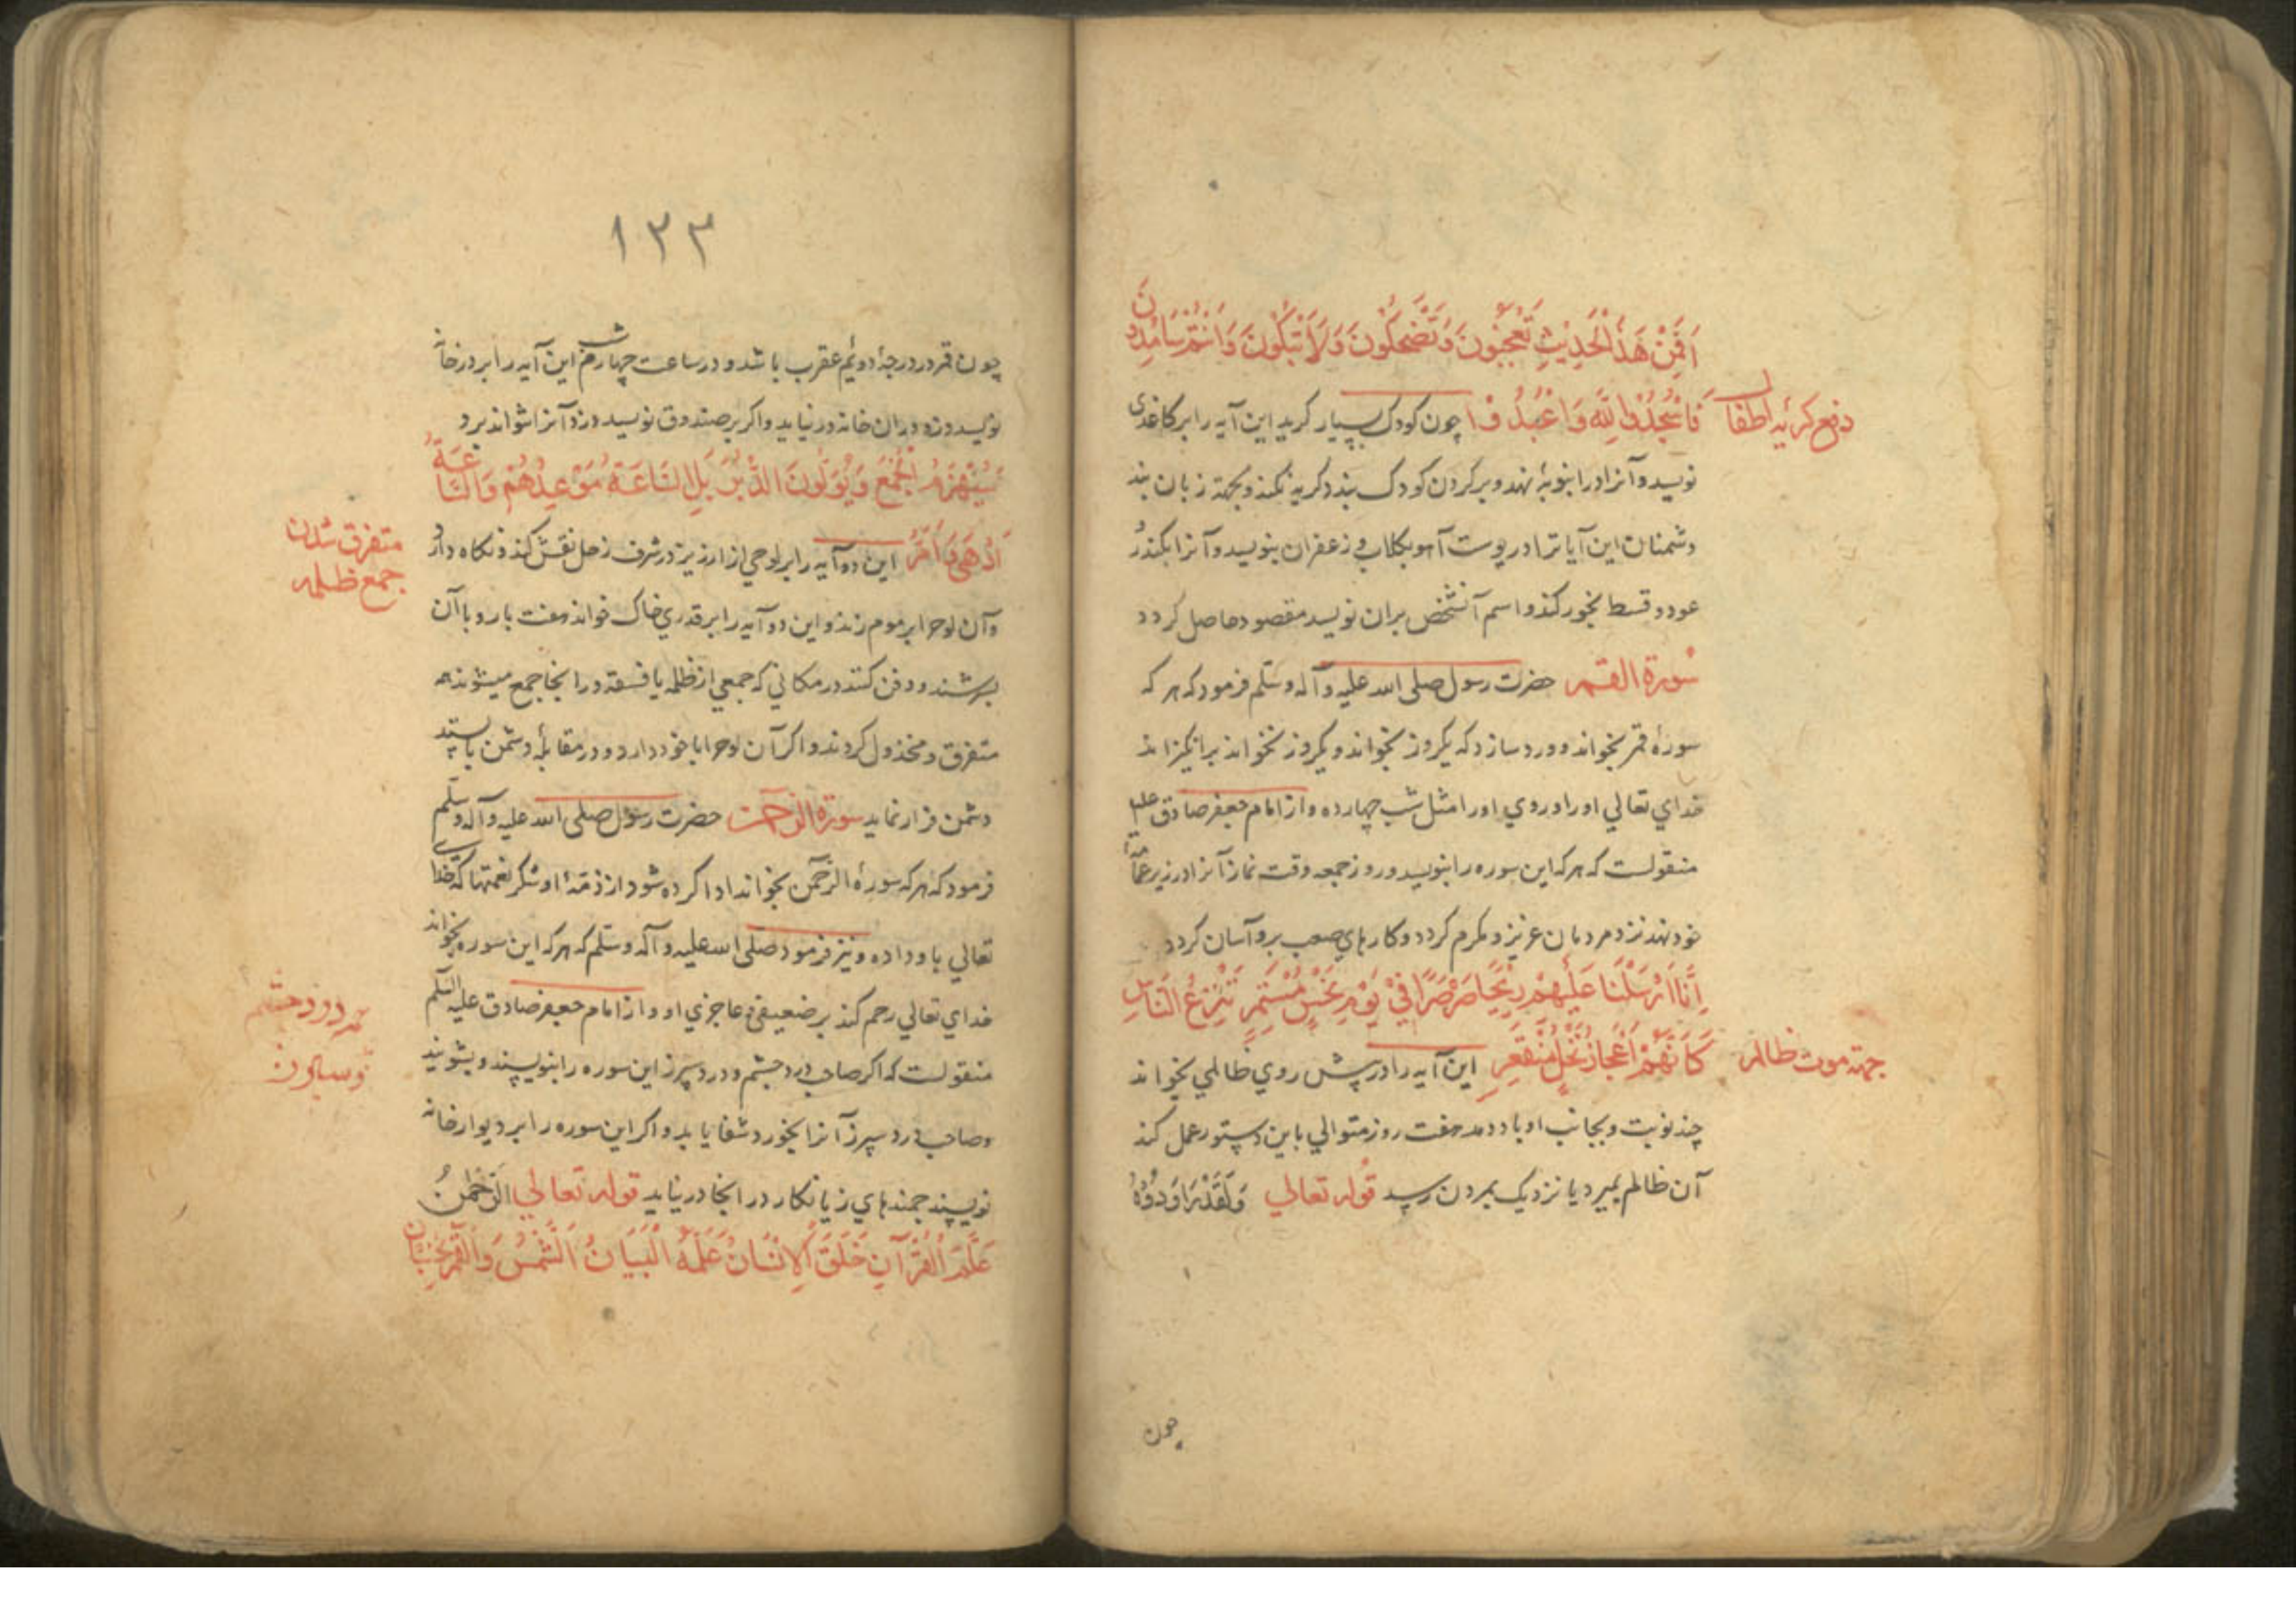 اَفَمِنْ هَذَا الْحَدِيْثِ تَعْجَبُونَ وَتَضْحَكُونَ وَلَا تَبْكُونَ وَاَنْتُمْ سَامِدُونَ
دفع کریهٔ اطفال
فَاسْجُدُوا لِلَّهِ وَاعْبُدُوْا چون کودک بسیار کرید این آیه را بر کاغذی
نویسد و آنرا در انبوبهٔ نهد و بر کردن کودک بندد کریه نکند و بجهة زبان بند
دشمنان این آیاترا در پوست آهو بکلاب و زعفران بنویسد و آنرا بکندر
عود و قسط بخور کند و اسم آنشخص بران نویسد مقصود حاصل کردد
سُورة القمر حضرت رسول صلی الله علیه و آله وسلّم فرمود که هر که
سورهٔ قمر بخواند و ورد سازد که یکروز بخواند و یکروز نخواند برانکیزاند
خدای تعالی او را و روی او را مثل شب چهارده و از امام جعفر صادق علیه
منقولست که هر که این سوره را بنویسد و روز جمعه وقت نماز آنرا در زیر عمامهٔ
خود نهد نزد مردمان عزیز و مکرم کردد و کارهای صعب برو آسان کردد
اِنَّا اَرْسَلْنَا عَلَيْهِمْ رِيْحًا صَرْصَرًا فِيْ يَوْمِ نَحْسٍ مُسْتَمِرٍّ تَنْزِعُ النَّاسَ
جهة موت ظالم
كَاَنَّهُمْ اَعْجَازُ نَخْلٍ مُنْقَعِرٍ این آیه را در پیش روی ظالمی بخواند
چند نوبت و بجانب او باد دمد هفت روز متوالی باین دستور عمل کند
آن ظالم بمیرد یا نزدیک بمردن رسد قوله تعالی وَلَقَدْ رَاوَدُوْهُ
چون
١٣٣
چون قمر در درجهٔ دوئیم عقرب باشد و در ساعت چهارم شب این آیه را بر در خانه
نویسد دزد دران خانه در نیاید و اکر بر صندوق نویسد دزد آنرا نتواند برد
سَيُهْزَمُ الْجَمْعُ وَيُوَلُّونَ الدُّبُرَ بَلِ السَّاعَةُ مَوْعِدُهُمْ وَالسَّاعَةُ
متفرق شدن
جمع ظلمه
اَدْهَى وَاَمَرُّ این دو آیه را بر لوحی از ارزیز در شرف زحل نقش کند و نکاه دارد
و آن لوح را بر موم زند و این دو آیه را بر قدری خاک خواند هفت بار و با آن
بسرشند و دفن کنند در مکانی که جمعی از ظلمه یا فسقه در انجا جمع میشوند همه
متفرق و مخذول کردند و اکر آن لوح را با خود دارد و در مقابلهٔ دشمن بایستد
دشمن فرار نماید سورة الرحمن حضرت رسول صلی الله علیه و آله وسلّم
فرمود که هر که سورهٔ الرّحمن بخواند ادا کرده شود از ذمّهٔ او شکر نعمتها که خدای
تعالی باو داده و نیز فرمود صلّی الله علیه و آله وسلّم که هر که این سوره بخواند
خدای تعالی رحم کند بر ضعیفی و عاجزی او و از امام جعفر صادق علیه السّلم
درد چشم
منقولست که اکر صاحب درد چشم و درد سپرز این سوره را بنویسند و بشویند
و صاحب درد سپرز آنرا بخورد شفا یابد و اکر این سوره را بر دیوار خانه
نویسند جمنده‌های زیانکار در انجا در نیاید قوله تعالی الرَّحْمَنُ
عَلَّمَ الْقُرْآنَ خَلَقَ الْاِنْسَانَ عَلَّمَهُ الْبَيَانَ اَلشَّمْسُ وَالْقَمَرُ بِحُسْبَانٍ